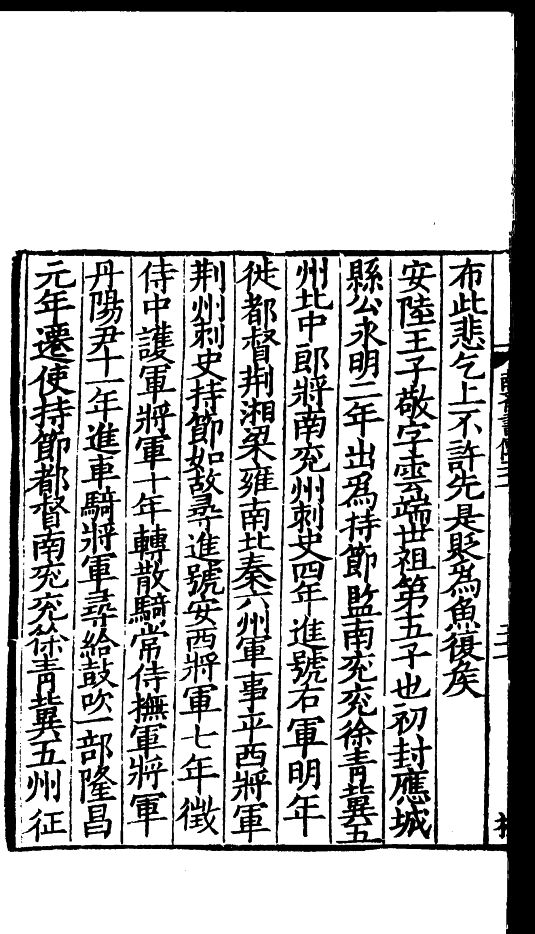 布此悲乞上不許先是貶為魚復矦
安陸王子敬字雲端世祖第五子也初封應城
縣公永明二年出爲持節監南兖兖徐靑冀五
州北中郎將南兖州刺史四年進號右軍明年
徙都督荆湘梁雍南北秦六州軍事平西將軍
荆州刺史持節如故尋進號安西將軍七年徵
侍中護軍將軍十年轉散騎常侍撫軍將軍
丹陽尹十一年進車騎將軍尋給鼓吹一部隆昌
元年遷使持節都督南兖兖徐靑冀五州征